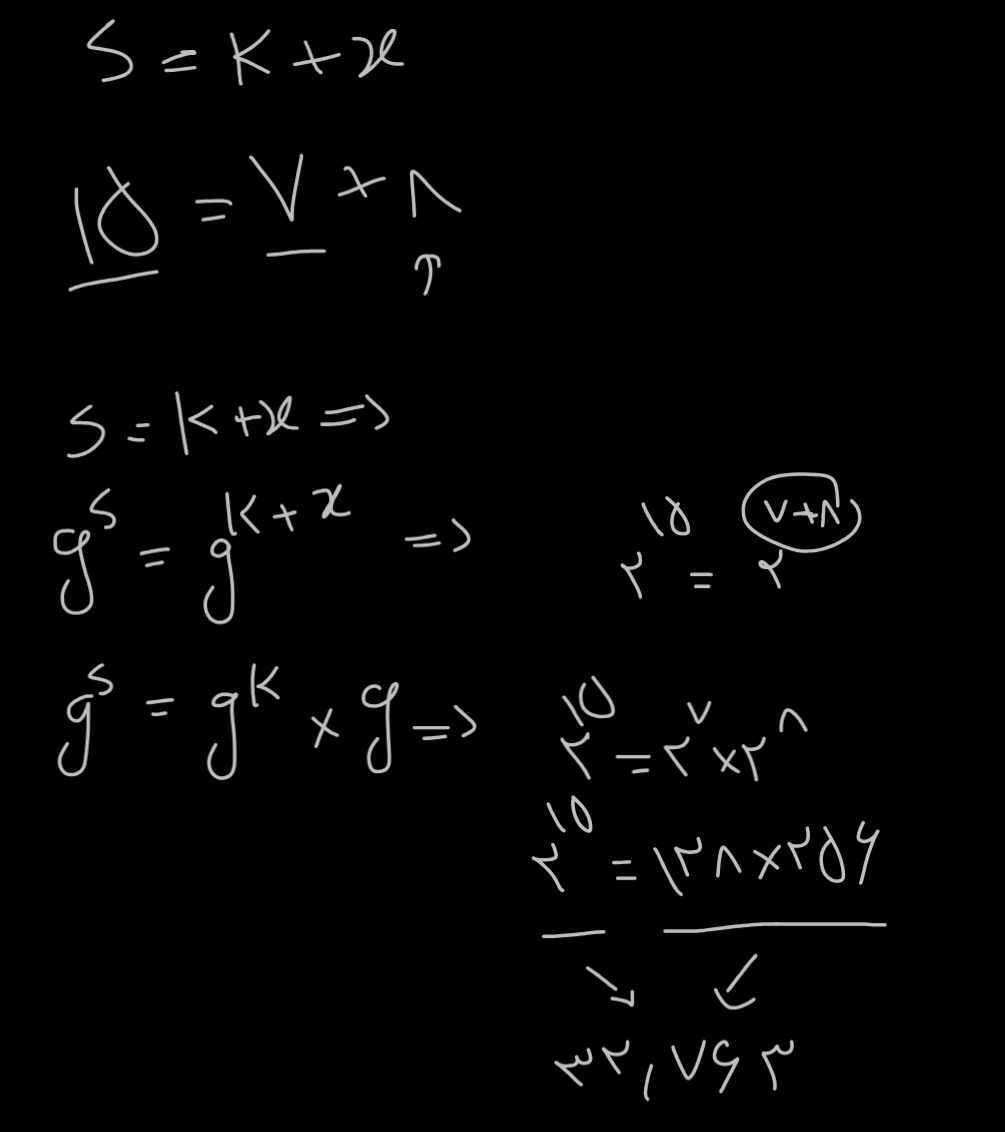 S = K + x
۱۵ = ۷ + ۸
↑
S = K + x =>
g^S = g^(K + x) =>
۲^۱۵ = ۲^(۷+۸)
g^S = g^K × g =>
۲^۱۵ = ۲^۷ × ۲^۸
۲^۱۵ = ۱۲۸ × ۲۵۶
۳۲,۷۶۲